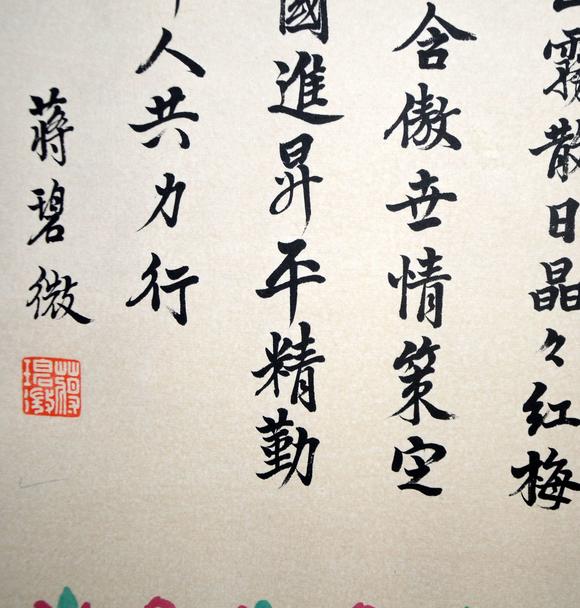 霧散日晶々紅梅
含傲世情策定
國進昇平精勤
人共力行
蔣碧微
蔣碧微